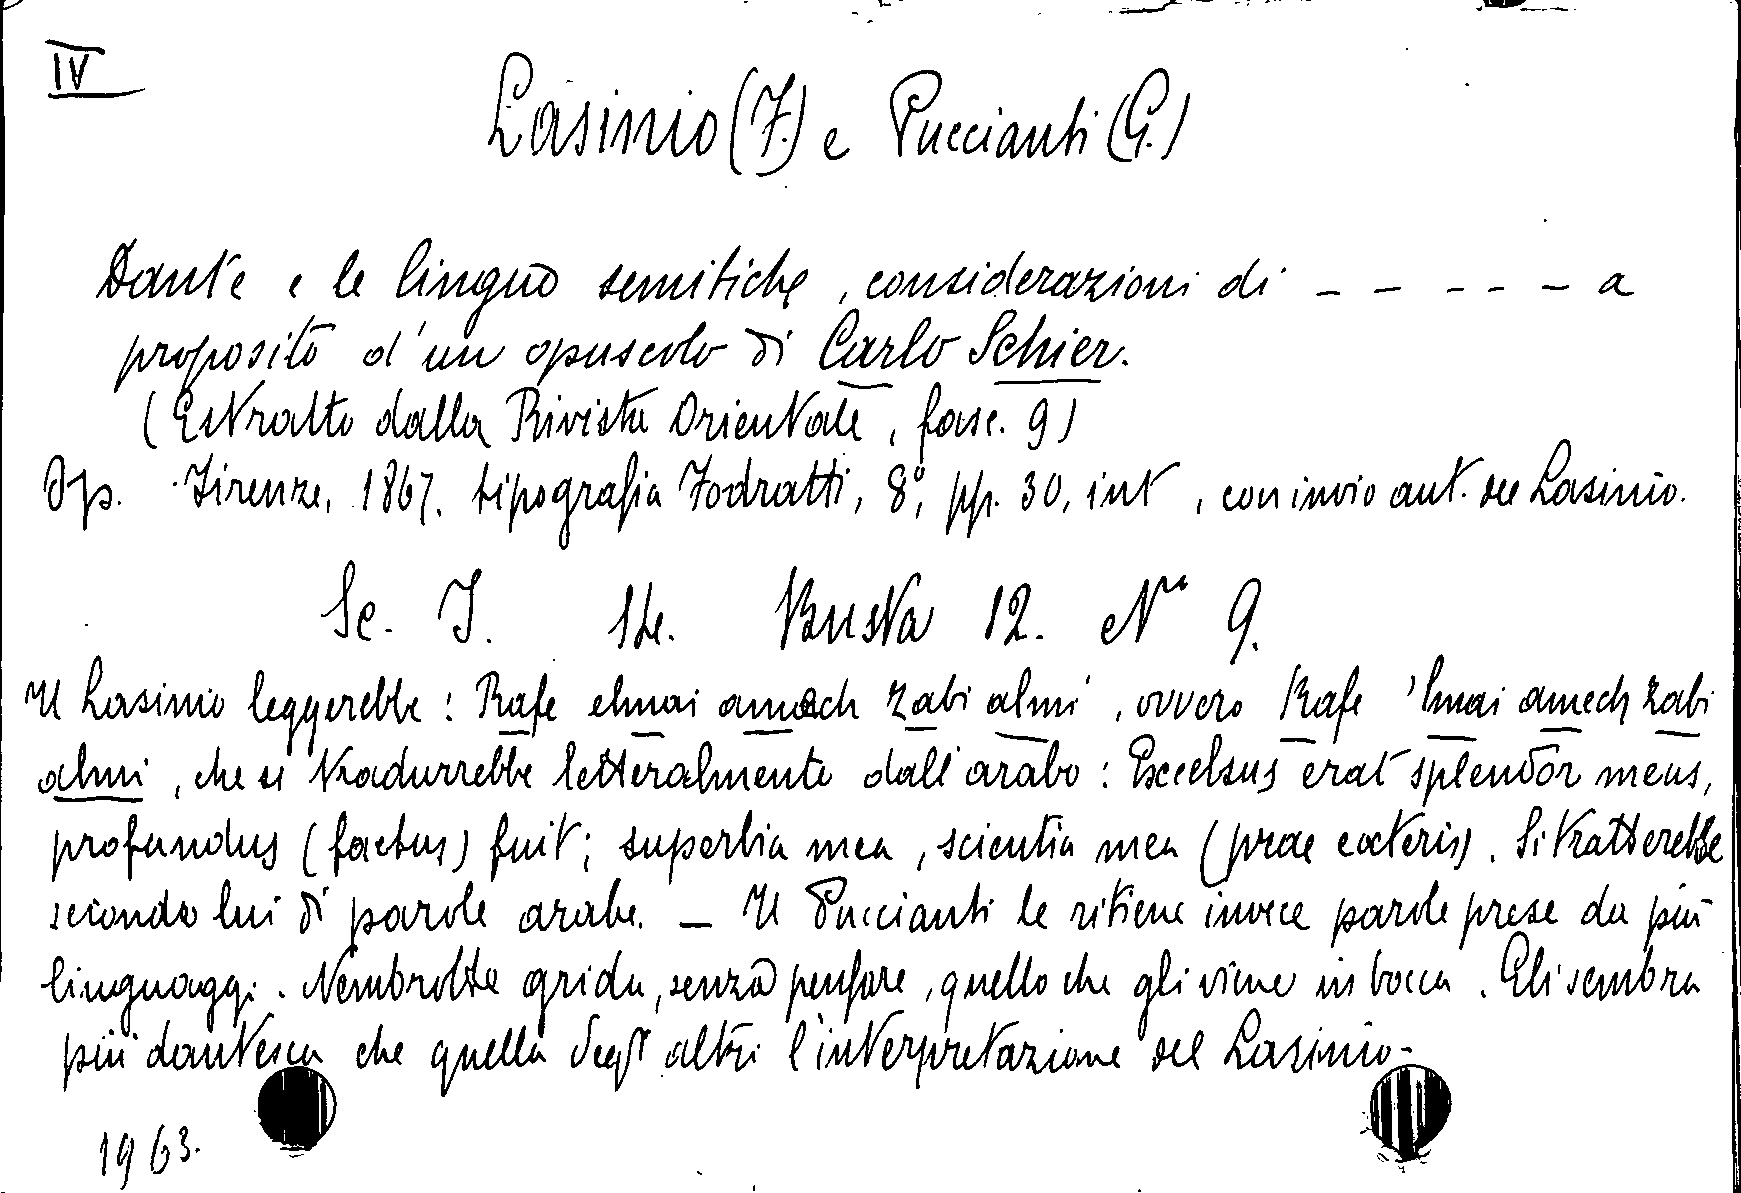 IV
Lasinio (F.) e Puccianti (G.)
Dante e le lingue semitiche, considerazioni di - - - - - - a
proposito d'un opuscolo di Carlo Schier.
(Estratto dalla Rivista Orientale, fasc. 9)
Op. Firenze, 1867. tipografia Fodratti, 8°, pp. 30, int , con invio aut. del Lasinio.
Sc. I. Busta 12. N° 9.
Il Lasinio leggerebbe: Rafe elmai amech zabi almi, ovvero Rafe 'lmai amech zabi
almi, che si tradurrebbe letteralmente dall'arabo: Excelsus erat splendor meus,
profundus (factus) fuit; superbia mea, scientia mea (prae coeteris). Si tratterebbe
secondo lui di parole arabe. — Il Puccianti le ritiene invece parole prese da più
linguaggi. Nembrotte grida, senza pensare, quello che gli viene in bocca. Gli sembra
più dantesca che quella degl'altri l'interpretazione del Lasinio.-
1963.